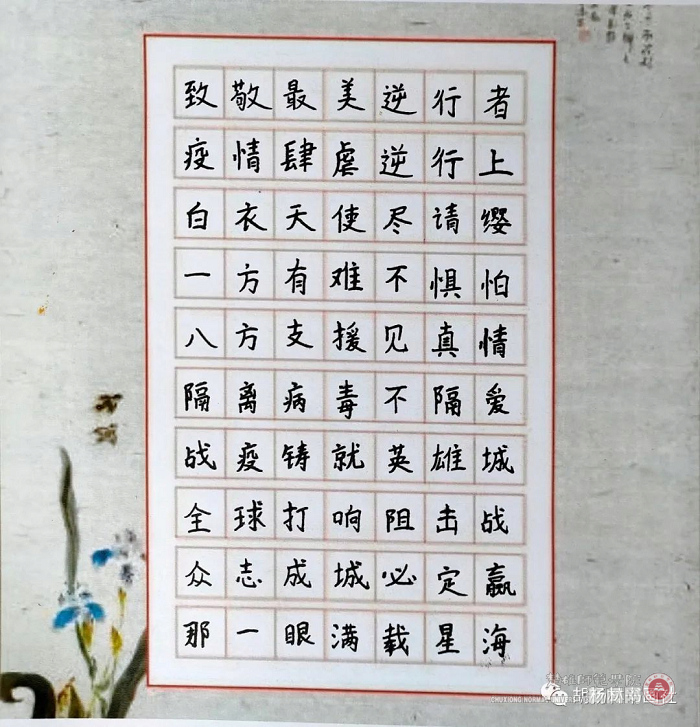 致敬最美逆行者
疫情肆虐逆行上
白衣天使尽请缨
一方有难不惧怕
八方支援见真情
隔离病毒不隔爱
战疫铸就英雄城
全球打响阻击战
众志成城必定赢
那一眼满载星海